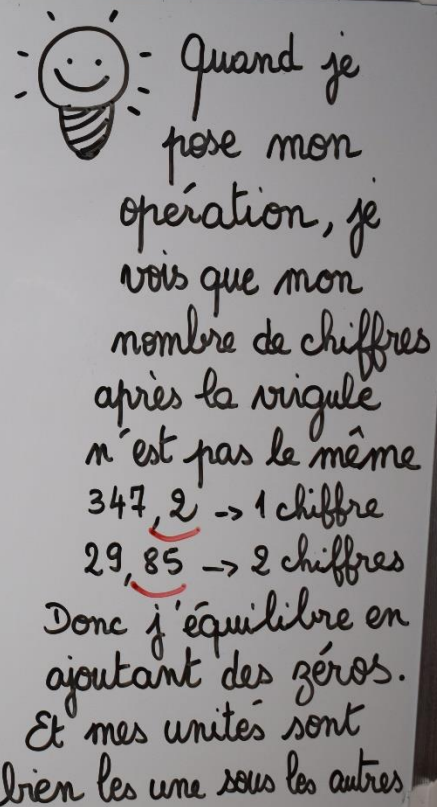 Quand je
pose mon
opération, je
vois que mon
nombre de chiffres
après la virgule
n'est pas le même
347,2 -> 1 chiffre
29,85 -> 2 chiffres
Donc j'équilibre en
ajoutant des zéros.
Et mes unités sont
bien les une sous les autres